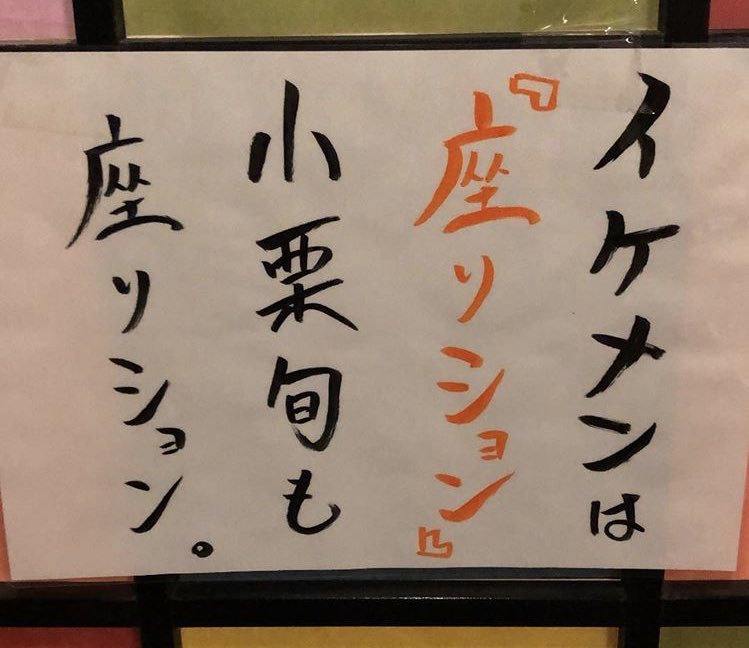 イケメンは
『座リション』
小栗旬も
座リション。